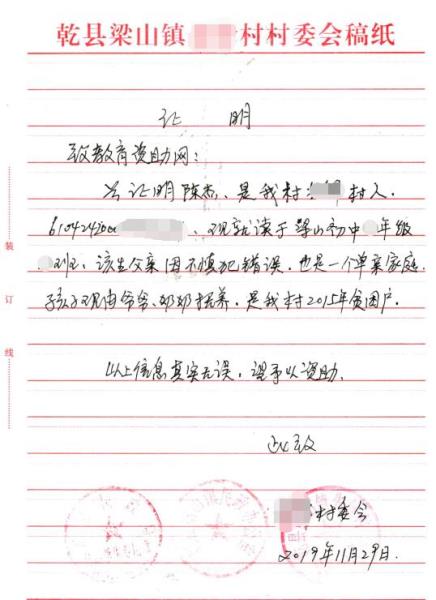 乾县梁山镇 村村委会稿纸
证 明
致教育资助网：
兹证明陈 、是我村 村人.
610424200 、现就读于梁山初中 年级
班、该生父亲因不慎犯错误、也是一个单亲家庭.
孩子现由爷爷、奶奶抚养、是我村2015年贫困户.
以上信息真实无误、望予以资助.
此致
村委会
2019年11月29日.
装
订
线